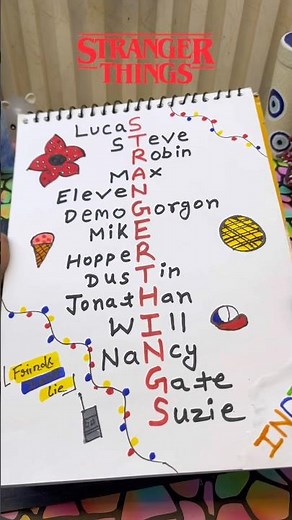 STRANGER
THINGS
LucaS
STeve
Robin
MAx
EleveN
DemoGorgon
MikE
HoppeR
DusTin
JonatHan
WIll
NaNcy
Gate
Suzie
Friends
Lie